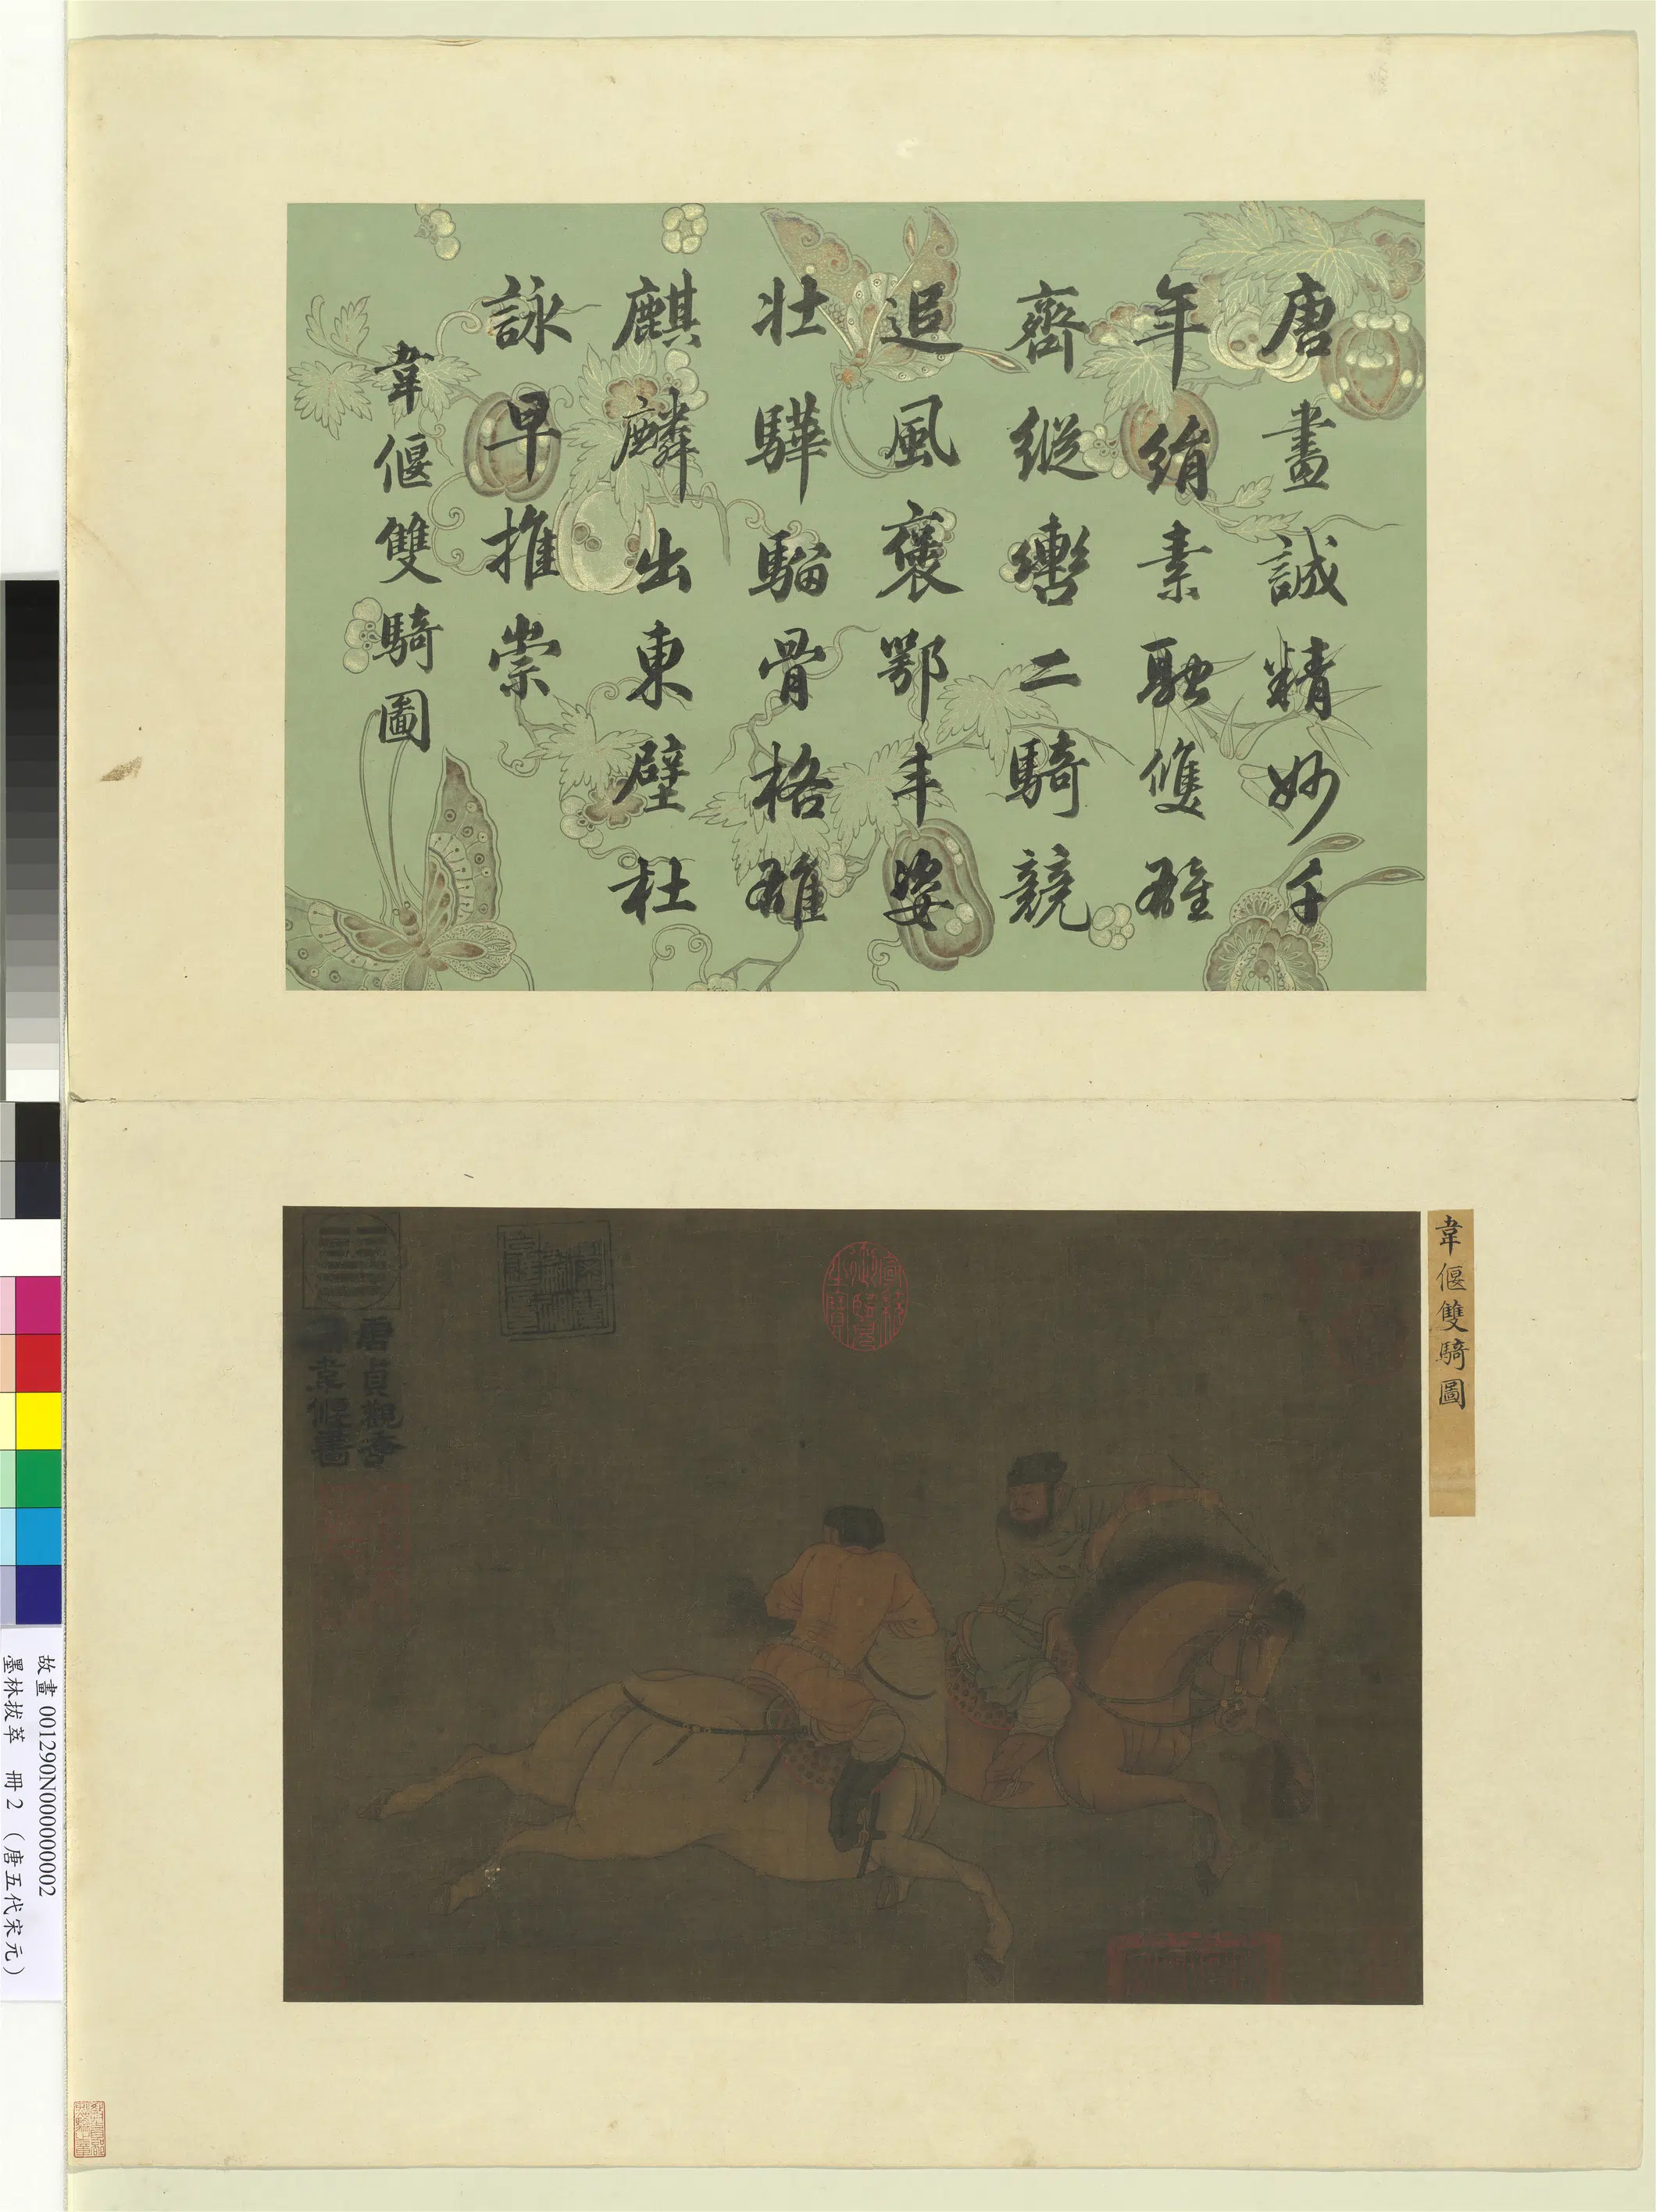 唐畫誠精妙千
年絹素融雙雖
齊縱轡二騎競
追風褒鄂丰姿
壯驊騮骨格雄
麒麟出東壁杜
詠早推崇
韋偃雙騎圖
韋偃雙騎圖
唐貞觀
韋偃畫
故畫 001290N000000002
墨林拔萃 冊2 (唐五代宋元)